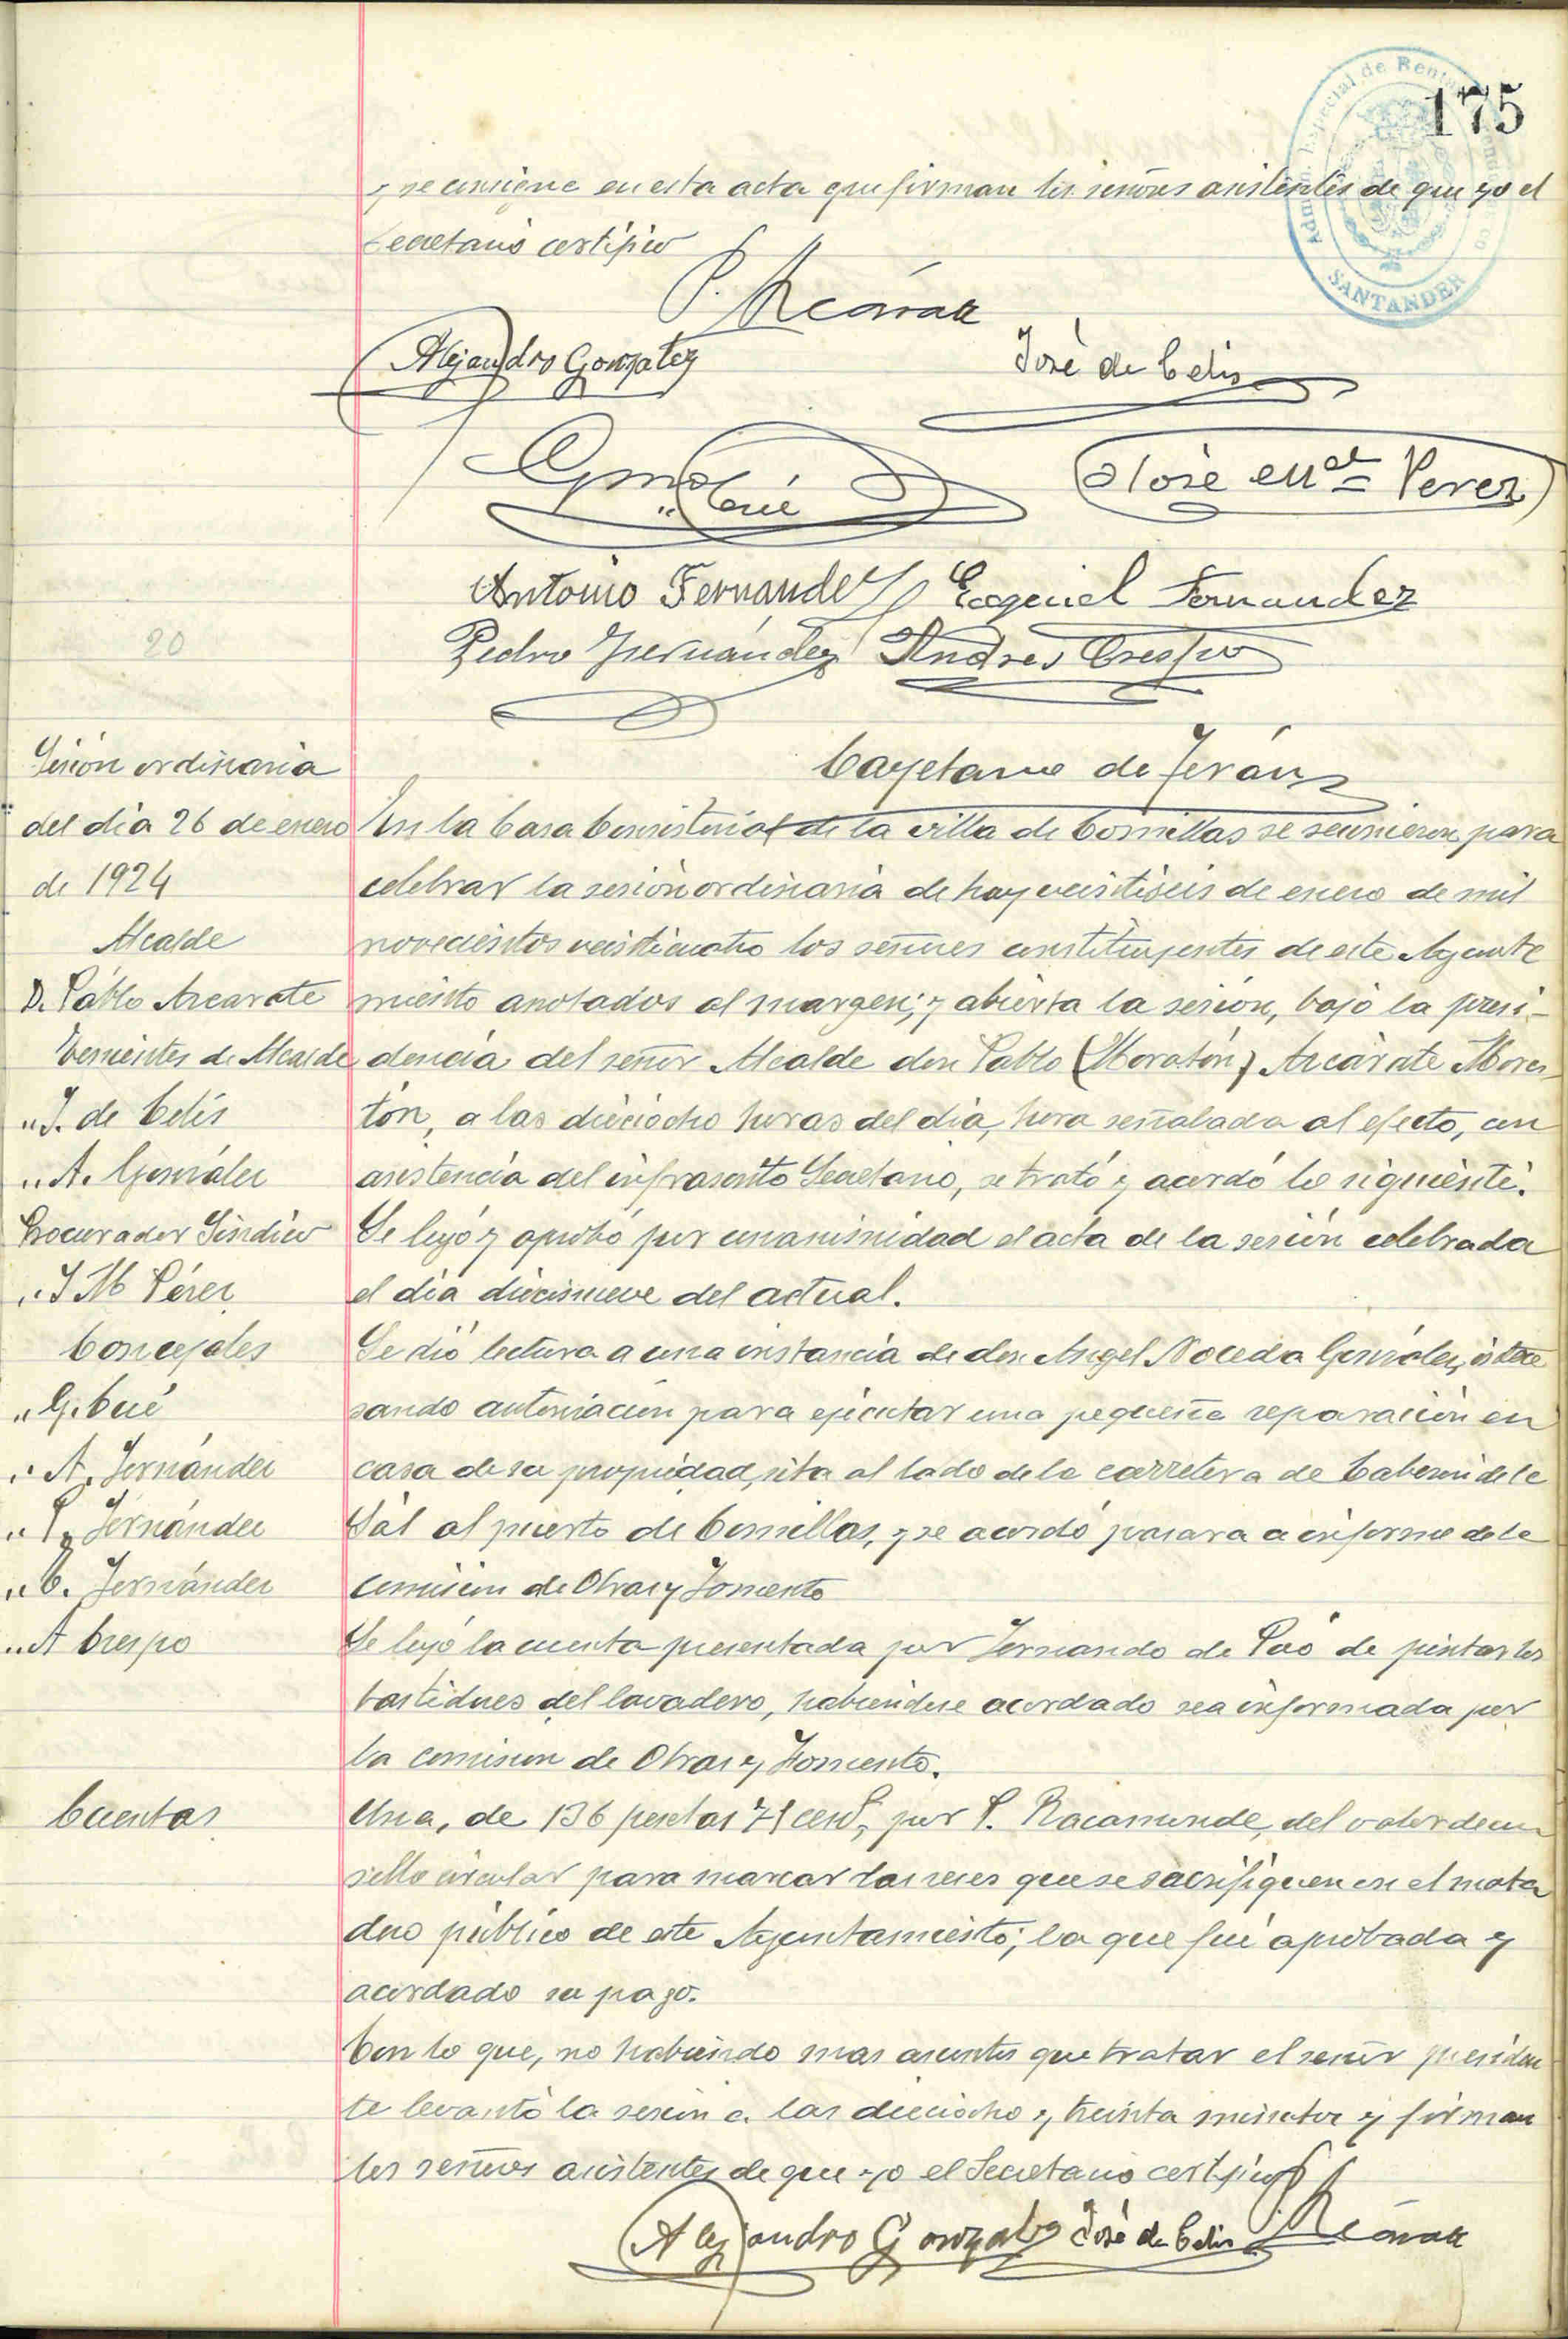 175
Admón. Especial de Rentas
SANTANDER
y se consigne en esta acta que firman los señores asistentes de que yo el
Secretario certifico
P. Azcárate
Alejandro Gonzalez
José de Celis
G. Cué
José M.ª Perez
Antonio Fernandez
Ezequiel Fernandez
Pedro Fernández
Andres Crespo
20
Cayetano de Terán
Sesión ordinaria
del dia 26 de enero
de 1924
Alcalde
D. Pablo Azcarate
Tenientes de Alcalde
" J. de Celis
" A. González
Procurador Sindico
" J M Pérez
Concejales
" G. Cué
" A. Fernández
" P. Fernández
" E. Fernández
" A Crespo
En la Casa Consistorial de la villa de Comillas se reunieron, para
celebrar la sesión ordinaria de hoy veintiseis de enero de mil
novecientos veinticuatro los señores constituyentes de este Ayunta
miento anotados al margen; y abierta la sesión, bajo la presi-
dencia del señor Alcalde don Pablo (Moratón) Azcárate Mores-
tón, a las dieciocho horas del dia, hora señalada al efecto, con
asistencia del infrascrito Secretario, se trató y acordó lo siguiente.
Se leyó y aprobó por unanimidad el acta de la sesión celebrada
el dia diecinueve del actual.
Se dió lectura a una instancia de don Angel Noceda González, intere
sando autorización para ejecutar una pequeña reparación en
casa de su propiedad, sita al lado de la carretera de Cabezón de la
Sal al puerto de Comillas, y se acordó pasara a informe de la
comisión de Obras y Fomento
Se leyó la cuenta presentada por Fernando de Poo de pintar los
bastidores del lavadero, habiendose acordado sea informada por
la comisión de Obras y Fomento.
Cuentas
Una, de 136 pesetas 71 cent.s, por P. Racamonde, del valor de un
sello circular para marcar las reses que se sacrifiquen en el mata
dero público de este Ayuntamiento; la que fué aprobada y
acordado su pago.
Con lo que, no habiendo mas asuntos que tratar el señor presiden
te levantó la sesión a las dieciocho y treinta minutos y firman
los señores asistentes de que yo el Secretario certifico
Alejandro Gonzalez José de Celis P. Azcárate